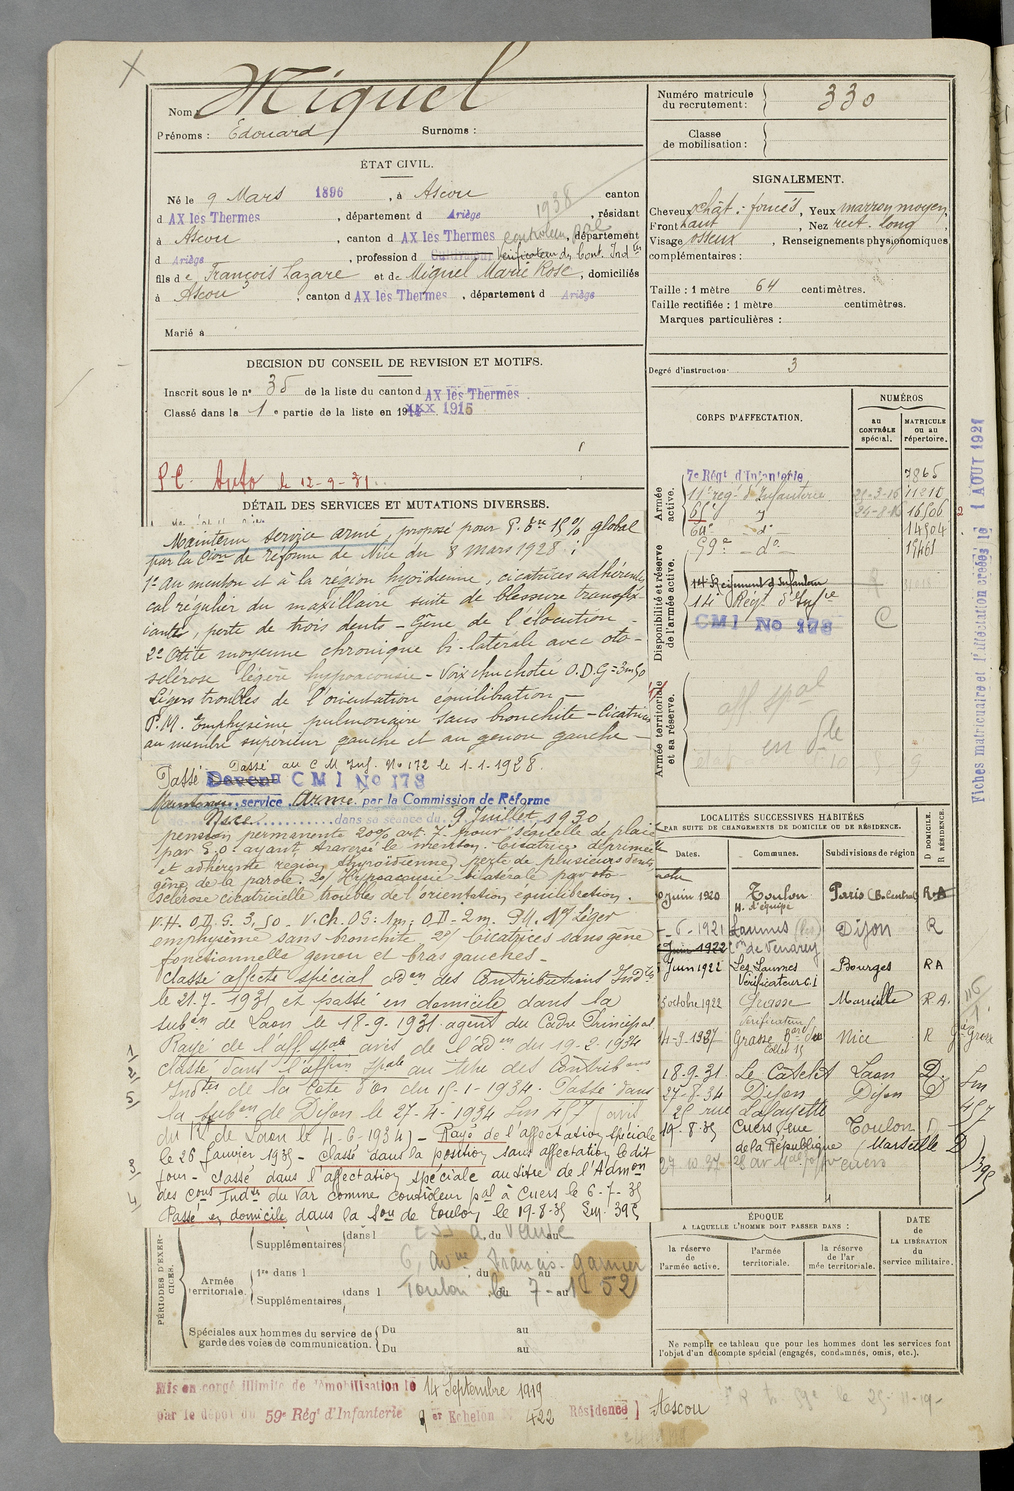 Nom Miquel
Prénoms : Edouard Surnoms :
Numéro matricule du recrutement : 330
Classe de mobilisation :
ÉTAT CIVIL.
Né le 9 Mars 1896, à Ascou canton
d AX les Thermes, département d Ariège, résidant
1938
à Ascou, canton d AX les Thermes, département
d Ariège, profession d Cultivateur Vérificateur des Cont. Ind tes
fils de François Lazare et de Miquel Marie Rose, domiciliés
à Ascou, canton d AX les Thermes, département d Ariège
Marié à
SIGNALEMENT.
Cheveux chât. foncés, Yeux marron moyen,
Front haut, Nez rect. long,
Visage osseux, Renseignements physionomiques
complémentaires :
Taille : 1 mètre 64 centimètres.
Taille rectifiée : 1 mètre centimètres.
Marques particulières :
Degré d'instruction 3
DECISION DU CONSEIL DE REVISION ET MOTIFS.
Inscrit sous le n° 35 de la liste du canton d AX les Thermes.
Classé dans la 1 e partie de la liste en 19 1915
P.C. Auto le 12-9-31.
DÉTAIL DES SERVICES ET MUTATIONS DIVERSES.
Maintenu service armé, proposé pour P. Tre 15% global
par la Con de réforme de Nice du 8 mars 1928 :
1° au menton et à la région hyoïdienne, cicatrices adhérentes
cal régulier du maxillaire suite de blessure transfix-
iante, perte de trois dents - Gêne de l'élocution -
2° Otite moyenne chronique bi-latérale avec oto-
sclérose légère hypoacousie - Voix chuchotée O.D.G = 3m50
Légers troubles de l'orientation équilibration -
P.M. Emphysème pulmonaire sans bronchite - Cicatrices
au membre supérieur gauche et au genou gauche -
Passé au C M Inf. No 172 le 1-1-1928.
Passé Devenu C M I No 178
Maintenu service Armé par la Commission de Réforme
de Nice dans sa séance du 9 Juillet 1930
pension permanente 20% art. 7 pour séquelle de plaie
par E.O. ayant traversé le menton. Cicatrice déprimée
et adhérente région thyroïdienne, perte de plusieurs dents
gêne de la parole. 2°) Hypoacousie bilatérale par oto
sclérose cicatricielle troubles de l'orientation, équilibration.
V.H. O.D.G. 3,50 - V. Ch. OG : 1m ; OD - 2m. P.M. 1°) Léger
emphysème sans bronchite 2°) Cicatrices sans gêne
fonctionnelle genou et bras gauches -
Classé affecté spécial ad on des Contributions Ind tes
le 21.7-1931 et passé en domicile dans la
subon de Laon le 18-9-1931 agent du Cadre Principal
Rayé de l'aff. spale avis de l'ad on du 19-2-1934
Classé dans l'affon spale au titre des Contrib ons
Ind tes de la Côte d'Or du 15-1-1934. Passé dans
la subon de Dijon le 27-4-1934 Lm 457 (avis
du Rt de Laon le 4-6-1934) - Rayé de l'affectation spéciale
le 26 Janvier 1935 - Classé dans la position sans affectation le dit
jour - Classé dans l'affectation spéciale au titre de l'Admon
des Cons Ind tes du Var comme contrôleur pal à Cuers le 6-7-35
Passé en domicile dans la Son de Toulon le 19-8-35 Lm. 395
CORPS D'AFFECTATION.
NUMÉROS
au CONTRÔLE spécial.
MATRICULE ou au répertoire.
Armée active.
7e Régt d'Infanterie 7865
11e reg. d'Infanterie 25-3-16 11210
65e d° 16506
64e d° 14504
59e d° 19461
Disponibilité et réserve de l'armée active.
14 Régiment d'Infanterie
14e Régt d'Infie C
CMI No 178
Armée territoriale et sa réserve.
aff. spal
LOCALITÉS SUCCESSIVES HABITÉES
PAR SUITE DE CHANGEMENTS DE DOMICILE OU DE RÉSIDENCE.
D DOMICILE. R RÉSIDENCE
Dates. Communes. Subdivisions de région
Juin 1920 Toulon Paris (B. Central) R.A
6-1921 Laumes Dijon R
Juin 1922 de Venarey
Juin 1922 Les Laumes Bourges RA
Vérificateur C.I
5 octobre 1922 Grasse Marseille R A.
Vérificateur
14-9-1927 Grasse Nice R
18-9-31 Le Catelet Laon D
27-8-34 Dijon Dijon D
25 rue Lafayette
19-8-35 Cuers rue Toulon D
de la République (Marseille D
Lm 457
395
Fiches matriculaire et d'affectation créées le 1 AOUT 1921
ÉPOQUE
A LAQUELLE L'HOMME DOIT PASSER DANS :
la réserve de l'armée active.
l'armée territoriale.
la réserve de l'armée territoriale.
DATE de LA LIBÉRATION du service militaire.
Ne remplir ce tableau que pour les hommes dont les services font
l'objet d'un décompte spécial (engagés, condamnés, omis, etc.).
PÉRIODES D'EXERCICES.
Supplémentaires dans l du au
Armée territoriale.
1re dans l du au
6, Avue Francis Garnier
Supplémentaires dans l du au
Toulon le 7-1-52
Spéciales aux hommes du service de garde des voies de communication. Du au
Du au
Mis en congé illimité de démobilisation le 14 Septembre 1919
par le dépôt du 59e Régt d'Infanterie 9 er Echelon N° 422 Résidence Ascou